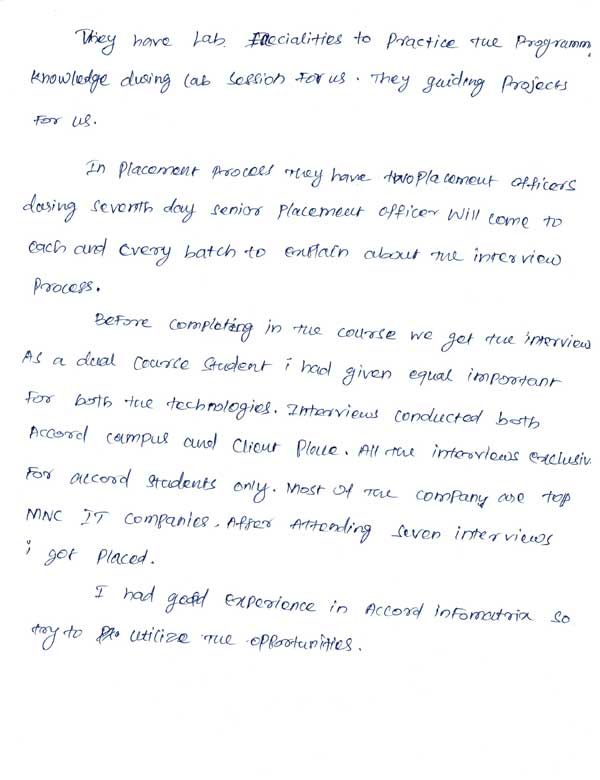 They have Lab Faccialities to Practice the Programm
knowledge during lab session for us. They guiding Projects
for us.
In Placement Process they have two Placement officers
during seventh day senior Placement officer will come to
each and every batch to explain about the interview
Process.
Before completing in the course we get the interview
As a dual course student i had given equal important
for both the technologies. Interviews conducted both
Accord campus and Client Place. All the interviews exclusiv
For accord students only. Most of the company are top
MNC IT Companies. After Attending seven interviews
i got Placed.
I had good experience in Accord infomatrix so
try to utilize the opportunities.